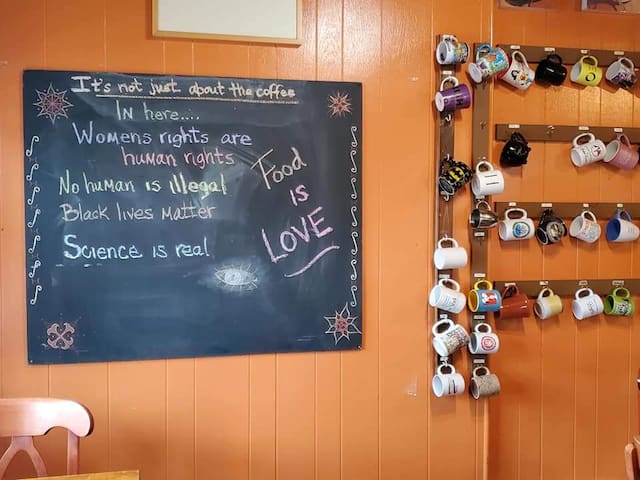 It's not just about the coffee
In here....
Womens rights are
human rights
No human is illegal
Black lives matter
Science is real
Food
is
LOVE